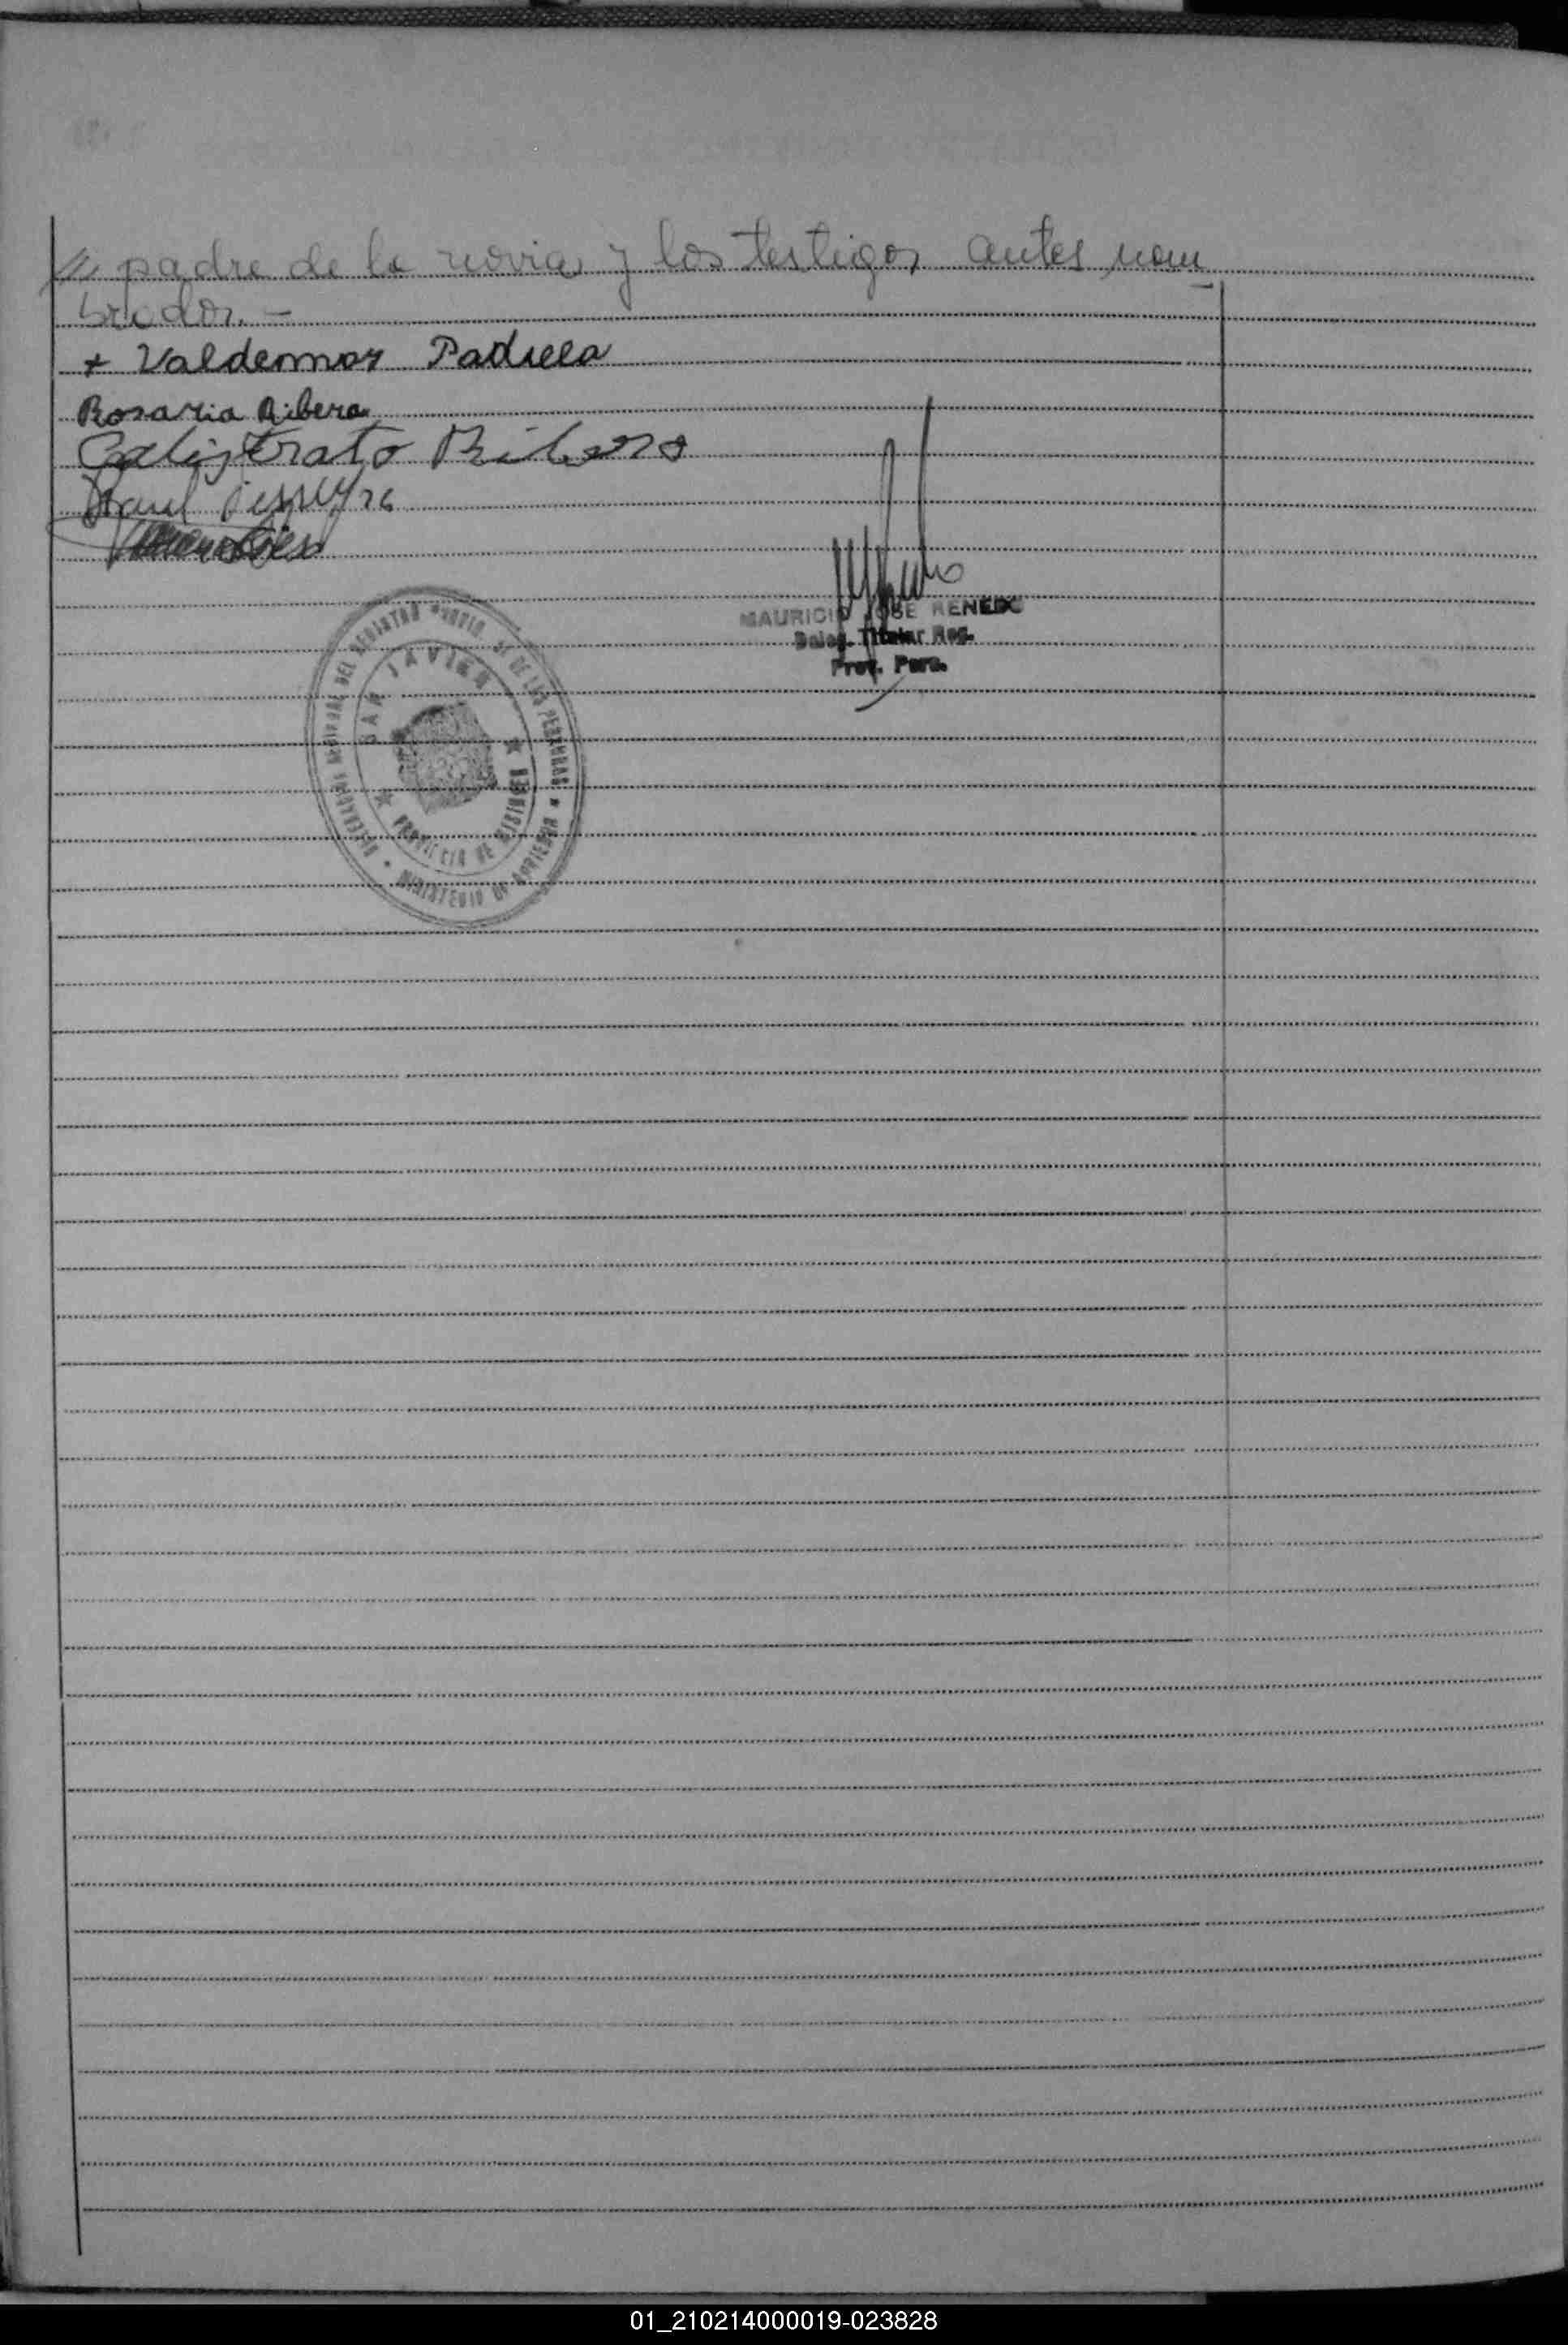 // padre de la novia y los testigos antes nom
brados. -
+ Valdemar Padilla
Rosaria Ribera
Calistrato Ribero
MAURICIO JOSE RENEDO
Deleg. Titular Reg.
Prov. Pers.
DELEGACION REGIONAL DEL REGISTRO PROVINCIAL DE LAS PERSONAS
SAN JAVIER
PROVINCIA DE MISIONES
MINISTERIO DE GOBIERNO
01_210214000019-023828